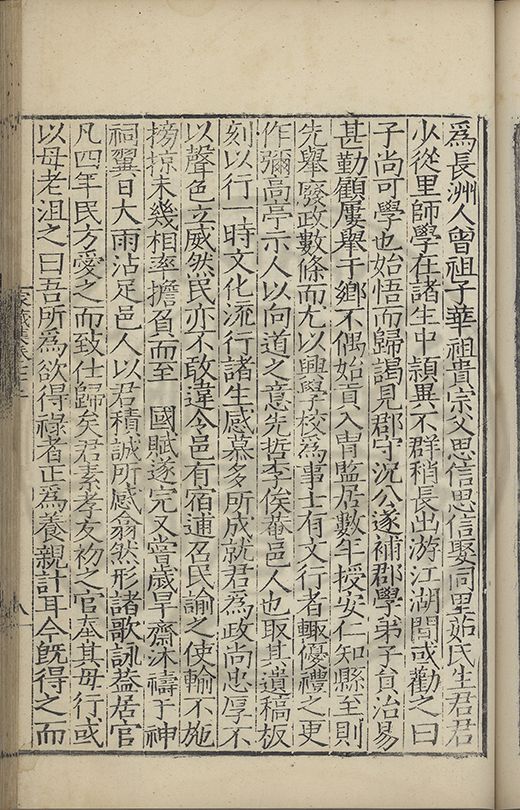 爲長洲人曾祖子華祖貴宗父思信思信娶同里茹氏生君君
少從里師學在諸生中頴異不群稍長出游江湖間或勸之曰
子尚可學也始悟而歸謁見郡守况公遂補郡學弟子員治易
甚勤顧屢舉于鄉不偶始貢入胄監居數年授安仁知縣至則
先舉廢政數條而尤以興學校爲事士有文行者輙優禮之更
作彌高亭示人以向道之意先哲李俟菴邑人也取其遺稿板
刻以行一時文化流行諸生感慕多所成就君爲政尚忠厚不
以聲色立威然民亦不敢違令邑有宿逋召民諭之使輸不施
搒掠未幾相率擔負而至 國賦遂完又嘗歲旱齋沐禱于神
祠翼日大雨沾足邑人以君積誠所感翕然形諸歌詠葢居官
凡四年民方愛之而致仕歸矣君素孝友初之官奉其母行或
以母老沮之曰吾所爲欲得祿者正爲養親計耳今旣得之而